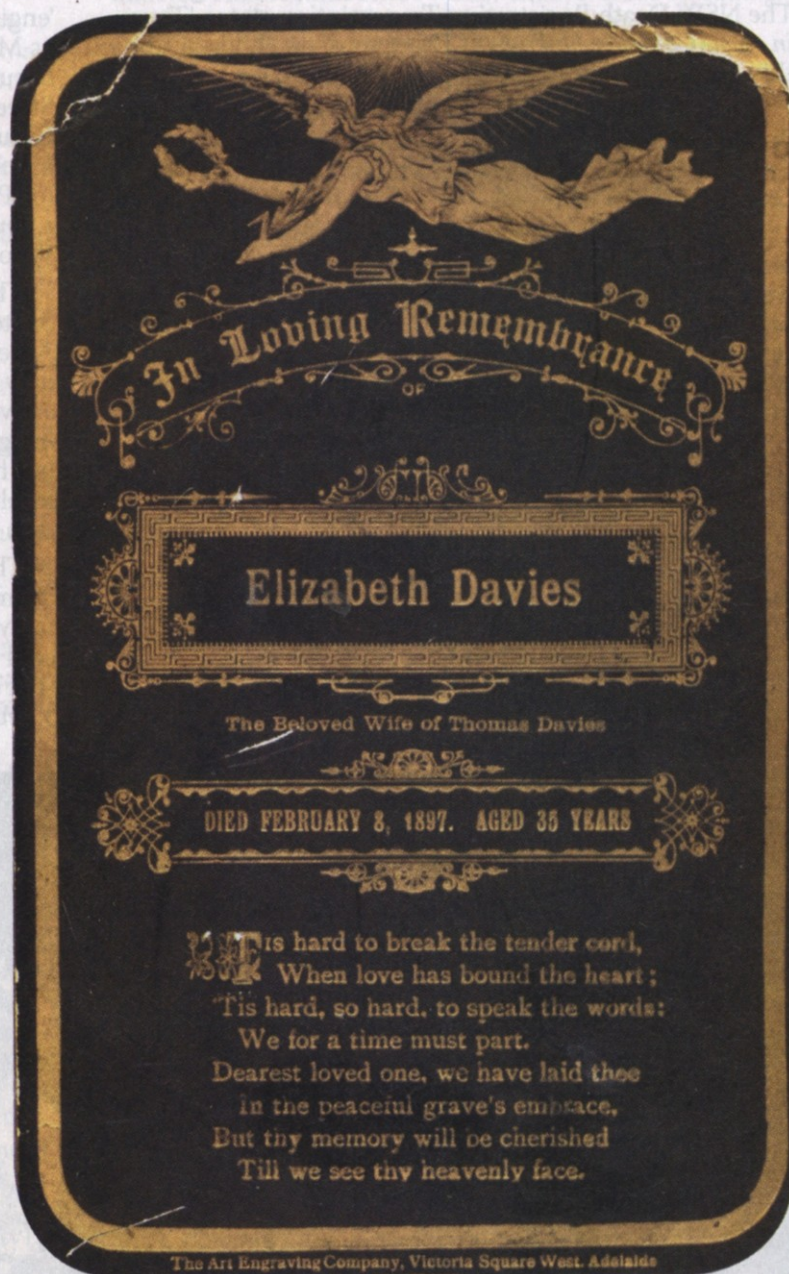 In Loving Remembrance
OF
Elizabeth Davies
The Beloved Wife of Thomas Davies
DIED FEBRUARY 8, 1897. AGED 35 YEARS
'Tis hard to break the tender cord,
When love has bound the heart;
'Tis hard, so hard, to speak the words:
We for a time must part.
Dearest loved one, we have laid thee
In the peaceful grave's embrace,
But thy memory will be cherished
Till we see thy heavenly face.
The Art Engraving Company, Victoria Square West. Adelaide